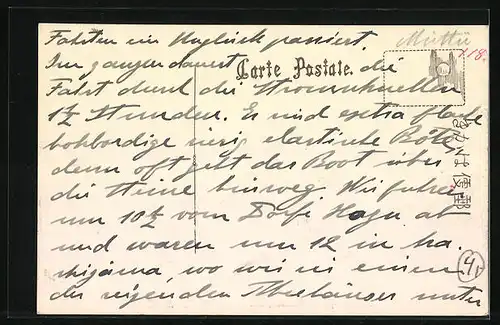 Fahrten ein Unglück passiert.
Im ganzen dauert die
Carte Postale.
Fahrt durch die Stromschnellen
1½ Stunden. Es sind extra flache
hochbordige elastische Böte,
denn oft geht das Boot über
die Steine hinweg. Wir fuhren
um 10½ vom Dorfe Hozu ab
und waren um 12 in Ara-
shiyama, wo wir in einem
der reizenden Theehäuser unter
118.
便郵
41